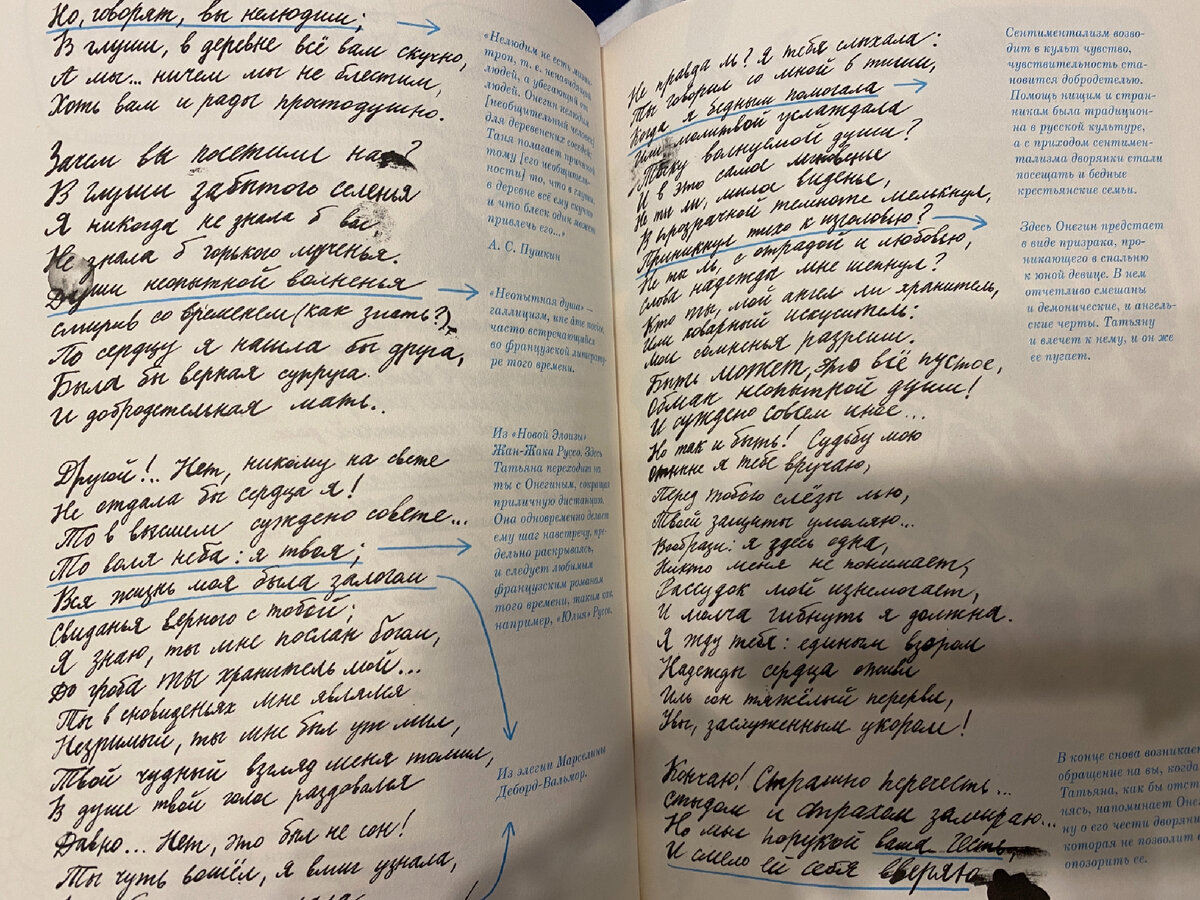 Но, говорят, вы нелюдим;
В глуши, в деревне всё вам скучно,
А мы... ничем мы не блестим,
Хоть вам и рады простодушно.
Зачем вы посетили нас?
В глуши забытого селенья
Я никогда не знала б вас,
Не знала б горького мученья.
Души неопытной волненья
смирив со временем (как знать?),
По сердцу я нашла бы друга,
Была бы верная супруга
И добродетельная мать..
Другой!.. Нет, никому на свете
Не отдала бы сердца я!
То в высшем суждено совете...
То воля неба: я твоя;
Вся жизнь моя была залогом
Свиданья верного с тобой;
Я знаю, ты мне послан богом,
До гроба ты хранитель мой...
Ты в сновиденьях мне являлся
Незримый, ты мне был уж мил,
Твой чудный взгляд меня томил,
В душе твой голос раздавался
Давно... Нет, это был не сон!
Ты чуть вошёл, я вмиг узнала,
«Нелюдим не есть мизан-
троп, т. е. ненавидящий
людей, а убегающий от
людей. Онегин нелюдим
[необщительный человек]
для деревенских соседей;
Таня полагает причиной
тому [его необщитель-
ности] то, что в глуши,
в деревне всё ему скучно
и что блеск один может
привлечь его...»
А. С. Пушкин
«Неопытная душа» —
галлицизм,
часто встречающийся
во французской литерату-
ре того времени.
Из «Новой Элоизы»
Жан-Жака Руссо. Здесь
Татьяна переходит на
ты с Онегиным, сокращая
приличную дистанцию.
Она одновременно делает
ему шаг навстречу, пре-
дельно раскрываясь,
и следует любимым
французским романам
того времени, таким как,
например, «Юлия» Руссо.
Из элегии Марселины
Деборд-Вальмор.
Не правда ль? Я тебя слыхала:
Ты говорил со мной в тиши,
Когда я бедным помогала
Или молитвой услаждала
Тоску волнуемой души?
И в это самое мгновенье
Не ты ли, милое виденье,
В прозрачной темноте мелькнул,
Приникнул тихо к изголовью?
Не ты ль, с отрадой и любовью,
Слова надежды мне шепнул?
Кто ты, мой ангел ли хранитель,
Или коварный искуситель:
Мои сомненья разреши.
Быть может, это всё пустое,
Обман неопытной души!
И суждено совсем иное...
Но так и быть! Судьбу мою
Отныне я тебе вручаю,
Перед тобою слёзы лью,
Твоей защиты умоляю...
Вообрази: я здесь одна,
Никто меня не понимает,
Рассудок мой изнемогает,
И молча гибнуть я должна.
Я жду тебя: единым взором
Надежды сердца оживи
Иль сон тяжёлый перерви,
Увы, заслуженным укором!
Кончаю! Страшно перечесть...
Стыдом и страхом замираю...
Но мне порукой ваша честь,
И смело ей себя вверяю
Сентиментализм возво-
дит в культ чувство,
чувствительность ста-
новится добродетелью.
Помощь нищим и стран-
никам была традицион-
на в русской культуре,
а с приходом сентимен-
тализма дворянки стали
посещать и бедные
крестьянские семьи.
Здесь Онегин предстает
в виде призрака, про-
никающего в спальню
к юной девице. В нем
отчетливо смешаны
и демонические, и ангель-
ские черты. Татьяну
и влечет к нему, и он же
ее пугает.
В конце снова возникает
обращение на вы, когда
Татьяна, как бы отст
нясь, напоминает Онег
ну о его чести дворяни
которая не позволит е
опозорить ее.